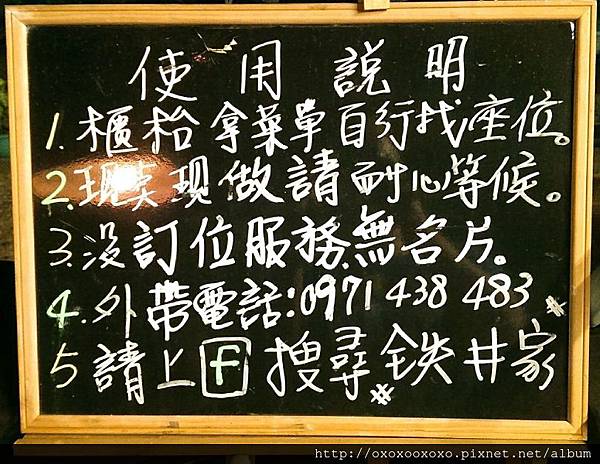 使用説明
1. 櫃枱拿菜單自行找座位。
2. 現点現做請耐心等候。
3. 沒訂位服務.無名片。
4. 外帶電話:0971 438 483
5 請上f搜尋#鉄井家#
http://oxoxooxoxo.pixnet.net/album